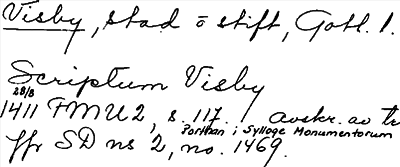 Visby, stad o stift, Gotl. l.
Scriptum Visby
28/8
1411 FMU 2, s. 117. avskr. av tr
Porthan i Sylloge Monumentorum
ffr SD ns 2, no. 1469.